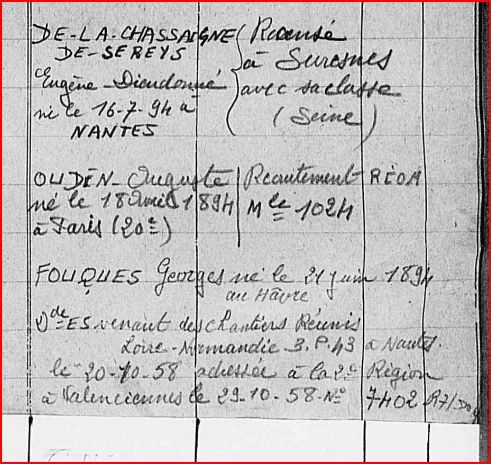 DE-LA-CHASSAIGNE
DE-SEREYS
Eugène-Dieudonné
né le 16-7-94 à
NANTES
Recensé
à Suresnes
avec sa classe
(Seine)
OUDEN Auguste
né le 18 avril 1894
à Paris (20e)
Recrutement REOM
Mle 1024
FOUQUES Georges né le 21 juin 1894
au Hâvre
Dde ES venant des chantiers Réunis
Loire-Normandie B.P. 43 à Nantes.
le 20-10-58 adressée à la 2e Région
à Valenciennes le 29-10-58-No 7402